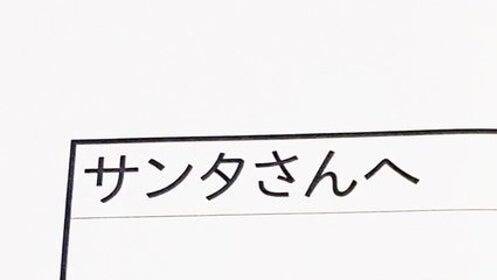 サンタさんへ